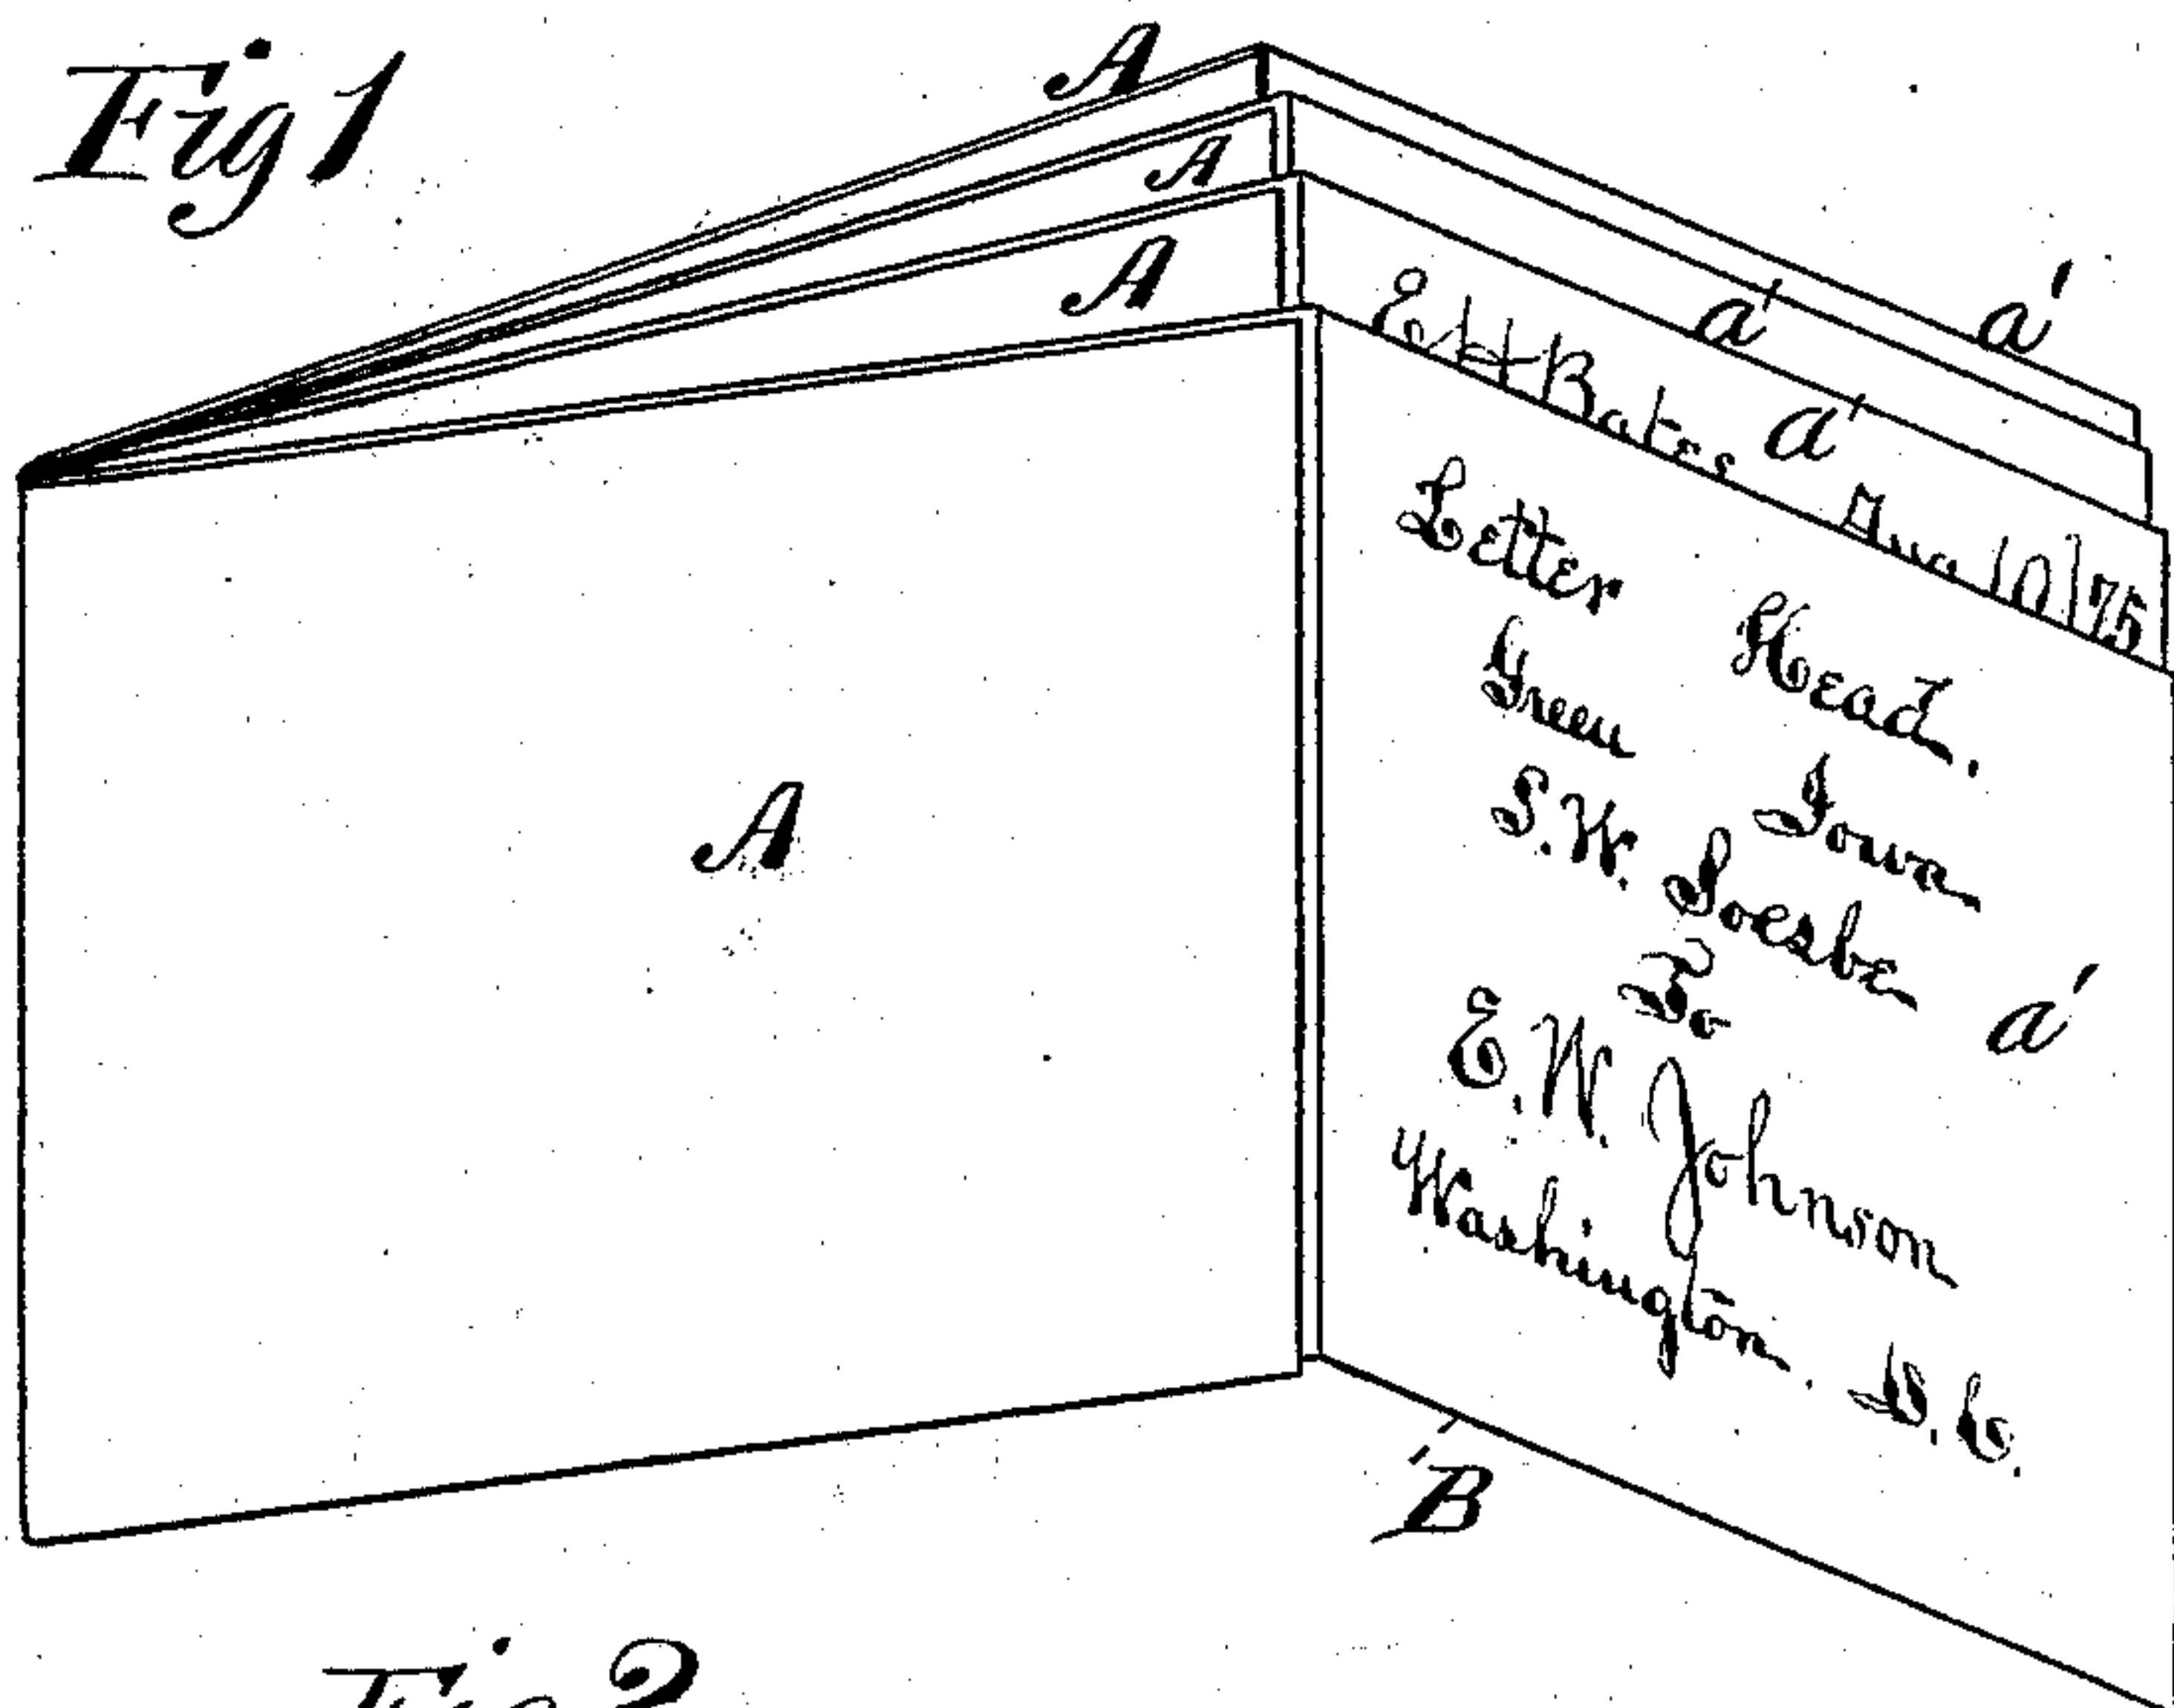 Fig 1
A
A
A
a'
a'
a'
E H Bates Aug 10 / 75
Letter Head.
Green Iowa
S. W. Soesbe
To
E. W. Johnson
Washington. D. C.
A
a'
B
Fig 2